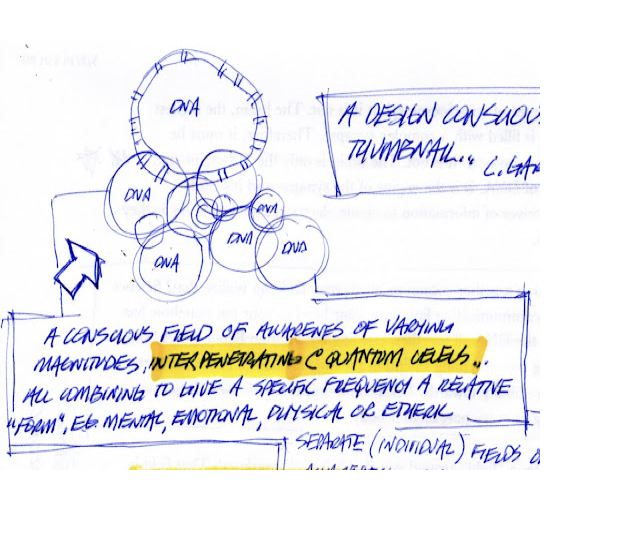 DNA
A DESIGN CONSCIOUS
THUMBNAIL..
DNA
DNA
DNA
DNA
DNA
A CONSCIOUS FIELD OF AWARENES OF VARYING
MAGNITUDES, INTERPENETRATING @ QUANTUM LEVELS..
ALL COMBINING TO GIVE A SPECIFIC FREQUENCY A RELATIVE
"FORM", EG. MENTAL, EMOTIONAL, PHYSICAL OR ETHERIC
SEPARATE (INDIVIDUAL) FIELDS